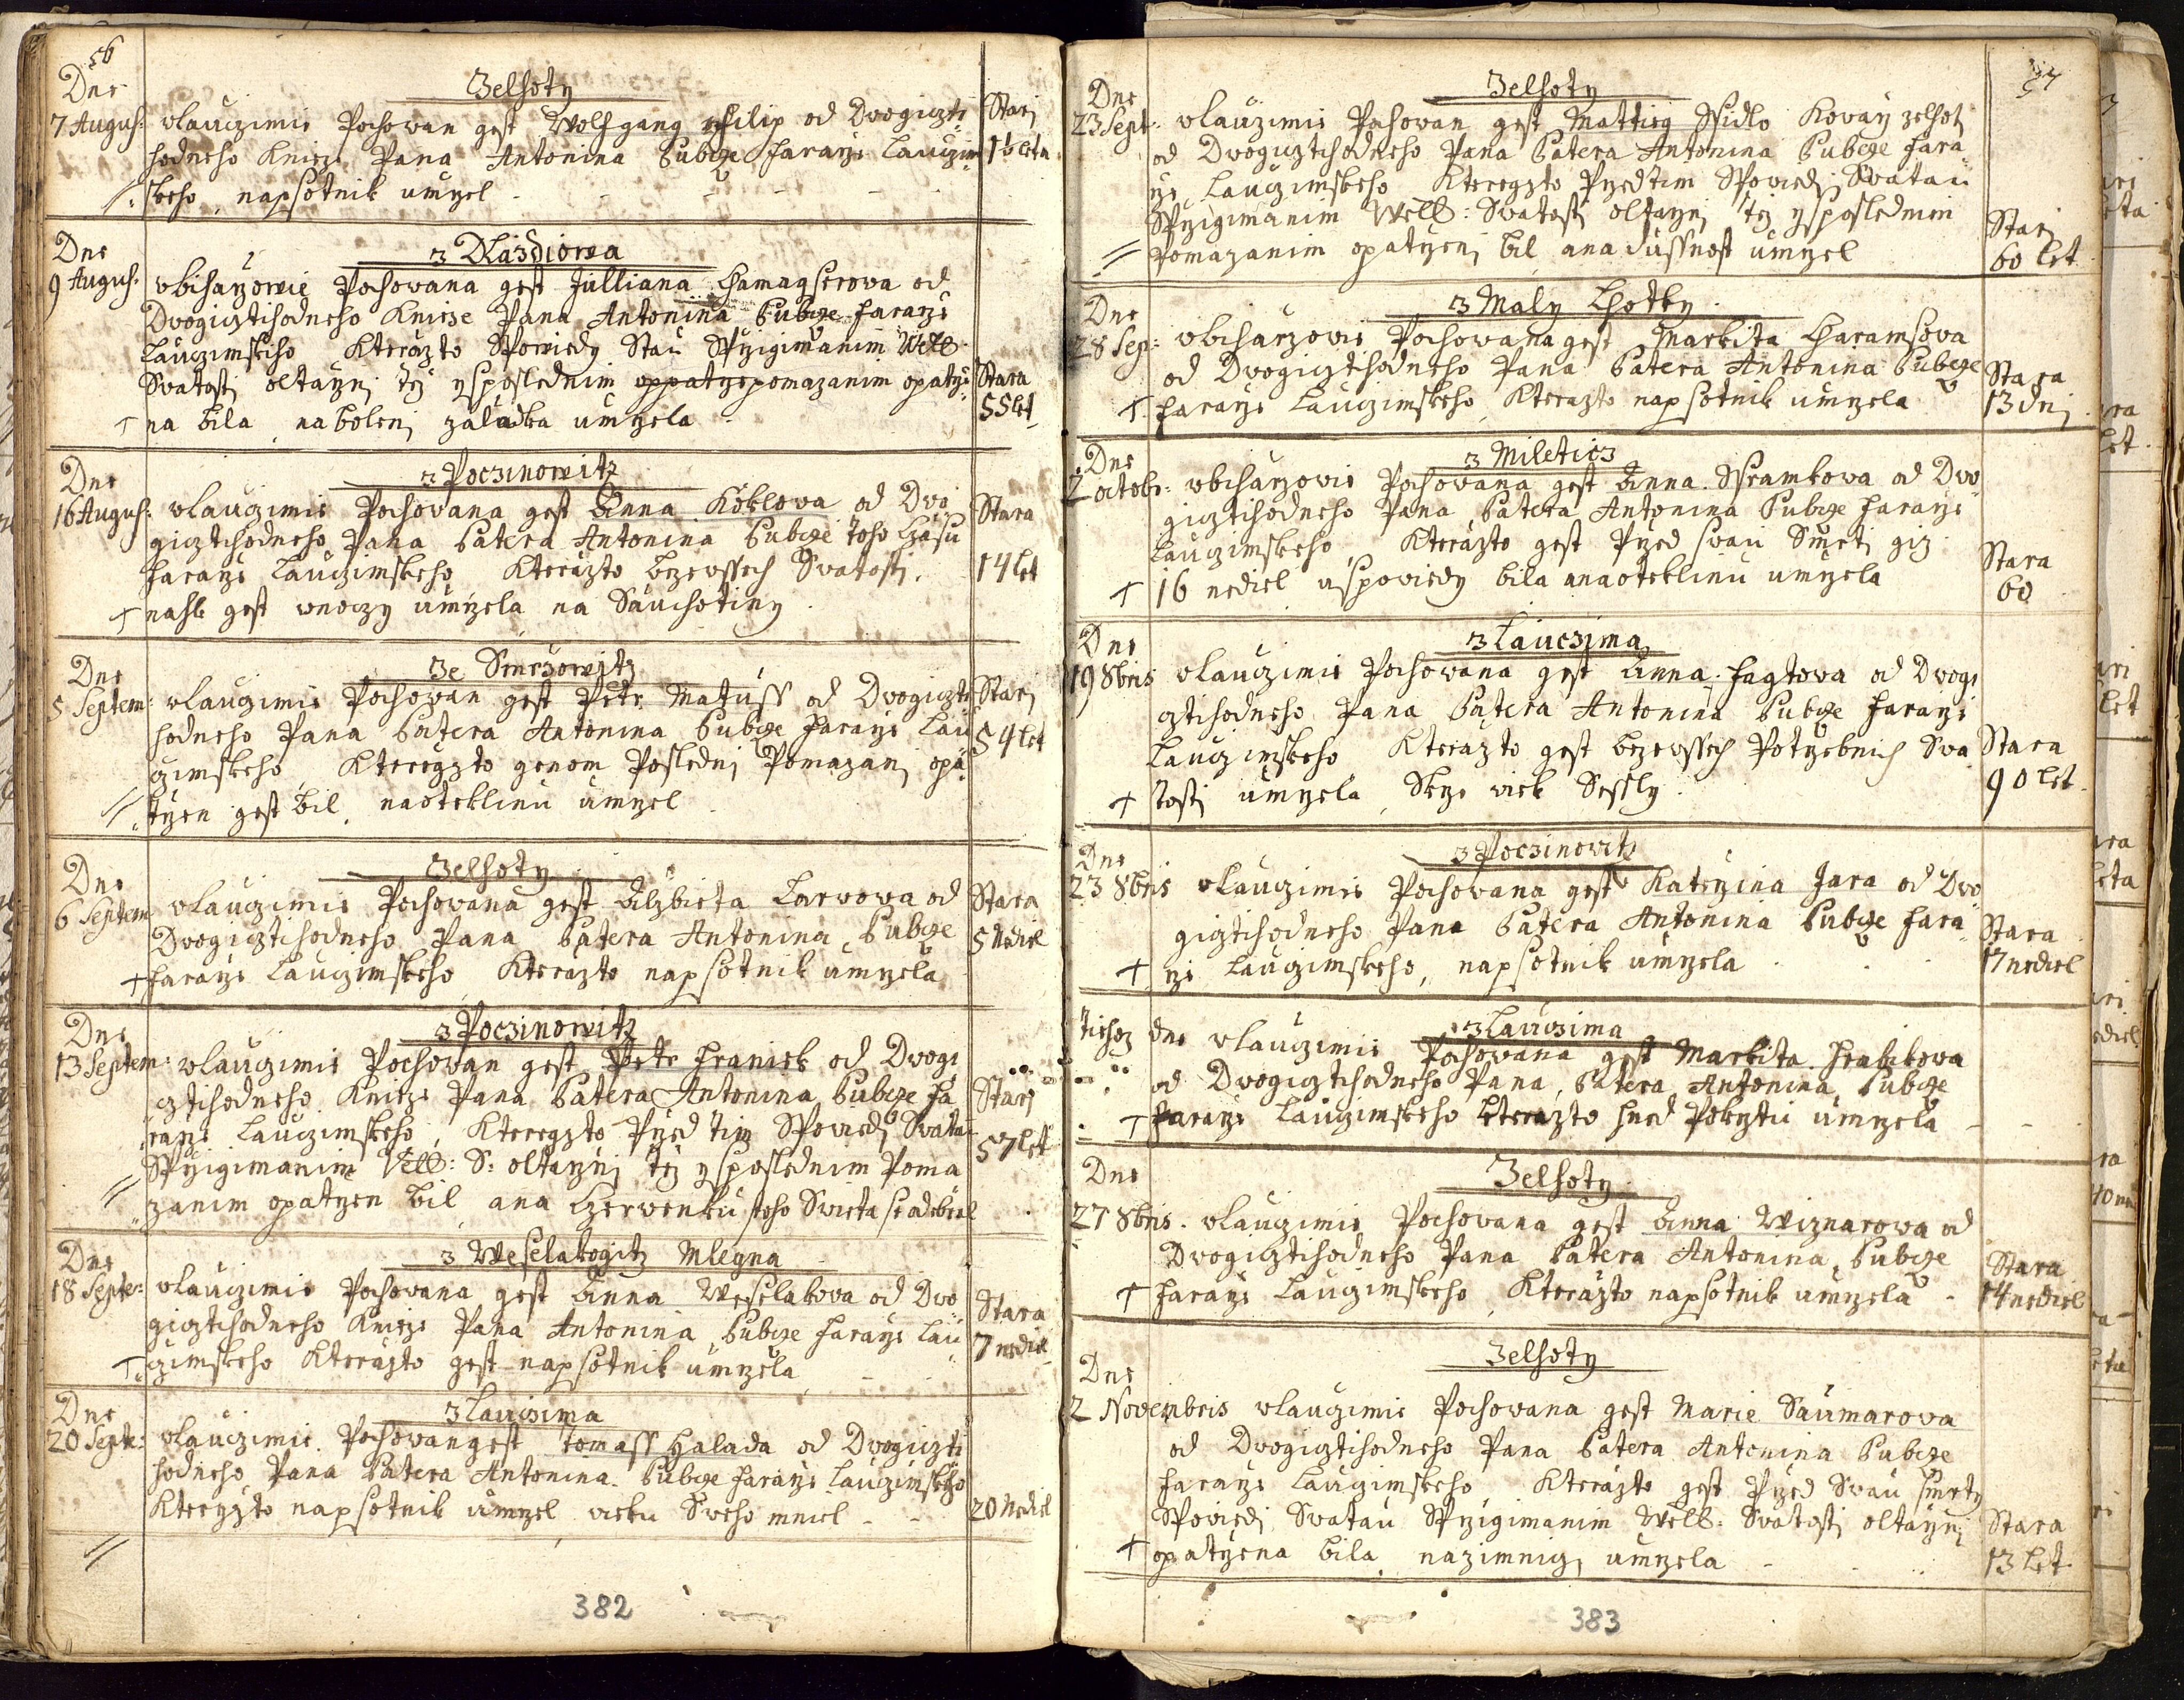 56
Dne
Zelhoty
7 August: wlauczimie Pochowan gest Wolfgang Philip od Dwogiczti
hodneho Knieze Pana Antonina Subcze Fararze Lauczim
skeho, napsotnik umrzel
Starj
1½ leta
Dne
z Dlazdiowa
9 August: wbicharzowie Pochowana gest Julliana od
Dwogicztihodneho Knieze Pana Antonina Subcze Fararze
Lauczimskeho Kterazto Spowiedy Stau Sprzigimanim Welb
Swatosti oltarznj tež ysposlednim oppatrzepomazanim opatrze
na bila, nabolenj zaludka umrzela
Stara
55 let
Dne
z Poczinowitz
16 August: wlauczimie Pochowana gest Anna Köklowa od Dwo
gicztihodneho Pana Patera Antonina Subcze toho Czasu
Fararze Lauczimskeho Kterazto bezewssech Swatosti,
nahle gest wnoczy umrzela na Sauchotiny
Stara
14 let
Dne
Ze Smrzowitz
5 Septem: wlauczimie Pochowan gest Petr Matuss od Dwogiczti
hodneho Pana Patera Antonina Subcze Fararze Lau
czimskeho, Kteregzto genom Poslednj Pomazanj opa
trzen gest bil, naoteklinu umrzel
Starj
54 let
Dne
Zelhoty
6 Septem wlauczimie Pochowana gest Alzbieta Larwowa od
Dwogicztihodneho Pana Patera Antonina Subcze
Fararze Lauczimskeho Kterazto napsotnik umrzela
Stara
5 Nediel
Dne
z Poczinowitz
13 Septem: wlauczimie Pochowan gest Petr Hraniek od Dwogi
cztihodneho Knieze Pana Patera Antonina Subcze Fa
rarze Lauczimskeho, Kteregzto Przed tim Spowiedj Swatau
Sprzigimanim Velb: S: oltarznj tež ysposlednim Poma
zanim opatrzen bil ana Czerwenku stoho Swieta se odebral
Starj
57 let
Dne
z Weselakogitz Mlegna
18 Septe: wlauczimie Pochowana gest Anna Weselakova od Dwo
gicztihodneho Knieze Pana Antonina Subcze Fararze Lau
czimskeho Kterazto gest napsotnik umrzela
Stara
7 nediel
Dne
z Lauczima
20 Septe: wlauczimie Pochowan gest Tomass Halada od Dwogiczti
hodneho Pana Patera Antonina Subcze Fararze Lauczimskeho
Kteryzto napsotnik umrzel wieku Sweho mniel
20 Nediel
382
57
Dne
Zelhoty
23 Sept: wlauczimie Pochowan gest Mattieg Ssidlo Kovarz zelhotj
od Dwogicztihodneho Pana Patera Antonina Subcze Fara
rze Lauczimskeho Kteregzto Przedtim Spowiedj Swatau
Sprzigimanim Welb: Swatosti oltarznj tež ysposlednim
Pomazanim opatrzenj bil ana dussnost umrzel
Starj
60 let
Dne
z Maly Lhotky
28 Sep: wbicharzowie Pochowana gest Markita Charamsowa
od Dwogicztihodneho Pana Patera Antonina Subcze
Fararze Lauczimskeho Kterazto napsotnik umrzela
Stara
13 dnj
Dne
z Miletitz
2 octobr: wbicharzowie Pochowana gest Anna Ssramkowa od Dwo
gicztihodneho Pana Patera Antonina Subcze Fararze
Lauczimskeho, Kterazto gest Przed swau Smrti giz
16 nediel uspowiedy bila anaoteklinu umrzela
Stara
60
Dne
z Lauczima
19 8bris wlauczimie Pochowana gest Anna Fagtowa od Dwogi
cztihodneho Pana Patera Antonina Subcze Fararze
Lauczimskeho Kterazto gest bezewssech Potrzebnich Swa
tosti umrzela, Skrze wiek Sessly
Stara
90 let
Dne
z Poczinowitz
23 8bris wlauczimie Pochowana gest Katerzina Jara od Dwo
gicztihodneho Pana Patera Antonina Subcze Fara
rze Lauczimskeho, napsotnik umrzela
Stara
17 nediel
z Lauczima
Tiehoz dne wlauczimie Pochowana gest Markita Hrabikowa
od Dwogicztihodneho Pana Patera Antonina Subcze
Fararze Lauczimskeho kterazto hned Pokrztu umrzela
Dne
Zelhoty
27 8bris wlauczimie Pochowana gest Anna Wiznarowa od
Dwogicztihodneho Pana Patera Antonina Subcze
Fararze Lauczimskeho, Kterazto napsotnik umrzela
Stara
14 nediel
Dne
Zelhoty
2 Novembris wlauczimie Pochowana gest Marie Saumarowa
od Dwogicztihodneho Pana Patera Antonina Subcze
Fararze Lauczimskeho Kterazto gest Przed Swau smrty
Spowiedj Swatau Sprzigimanim Welb: Swatosti oltarznj
opatrzena bila nazimnicj umrzela
Stara
13 let
383